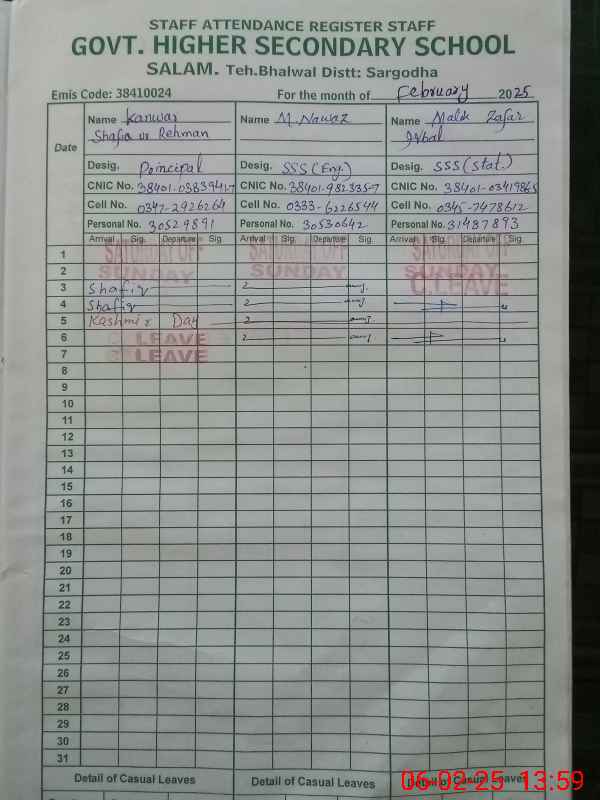 STAFF ATTENDANCE REGISTER STAFF
GOVT. HIGHER SECONDARY SCHOOL
SALAM. Teh.Bhalwal Distt: Sargodha
Emis Code: 38410024 For the month of February 2025
Date
Name Kanwar Name M. Nawaz Name Malik Zafar
Shafiq ur Rehman Iqbal
Desig. Principal Desig. SSS (Eng.) Desig. SSS (Stat.)
CNIC No. CNIC No. 38401-9823357 CNIC No.
Cell No. 0347-2926264 Cell No. 0333-6226544 Cell No. 0345-7478612
Personal No. 30529891 Personal No. 30530642 Personal No. 31487893
Arrival Sig. Departure Sig. Arrival Sig. Departure Sig. Arrival Sig. Departure Sig.
1 SATURDAY OFF SATURDAY OFF SATURDAY OFF
2 SUNDAY SUNDAY SUNDAY
3 Shafiq C.LEAVE
4 Shafiq
5 Kashmir Day
6 LEAVE
7 LEAVE
8
9
10
11
12
13
14
15
16
17
18
19
20
21
22
23
24
25
26
27
28
29
30
31
Detail of Casual Leaves Detail of Casual Leaves Detail of Casual Leaves
06-02-25 13:59